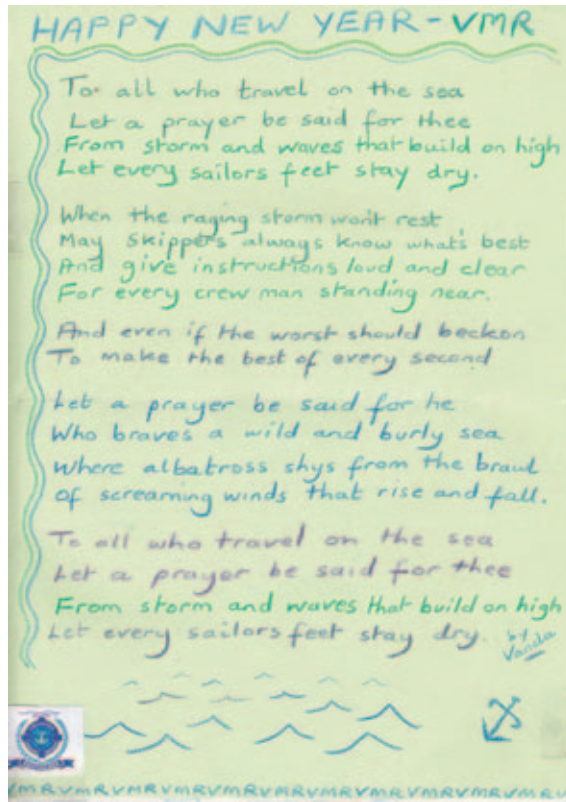 HAPPY NEW YEAR - VMR
To all who travel on the sea
Let a prayer be said for thee
From storm and waves that build on high
Let every sailors feet stay dry.
When the raging storm won't rest
May Skippers always know what's best
And give instructions loud and clear
For every crew man standing near.
And even if the worst should beckon
To make the best of every second
Let a prayer be said for he
Who braves a wild and burly sea
Where albatross shys from the braul
Of screaming winds that rise and fall.
To all who travel on the sea
Let a prayer be said for thee
From storm and waves that build on high
Let every sailors feet stay dry.
by
Vanda
VMRVMRVMRVMRVMRVMRVMRVMRVMRVMRV